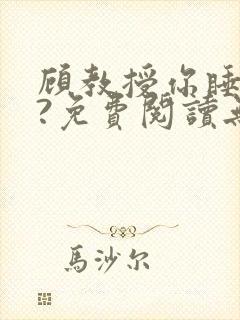 顧教授你睡
?免費閱讀
馬沙尔